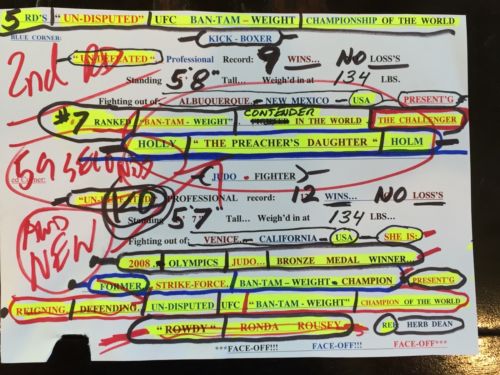 5 RD'S "UN-DISPUTED" UFC BAN-TAM-WEIGHT CHAMPIONSHIP OF THE WORLD
BLUE CORNER: KICK - BOXER
2nd RD
"UN-DEFEATED" Professional Record: 9 WINS... NO LOSS'S
Standing 5'8" Tall... Weigh'd in at 134 LBS.
Fighting out of: ALBUQUERQUE - NEW MEXICO - USA PRESENT'G
#7 RANKED "BAN-TAM-WEIGHT" CONTENDER IN THE WORLD THE CHALLENGER
HOLLY "THE PREACHER'S DAUGHTER" HOLM
59 SECONDS
Corner: JUDO - FIGHTER
PROFESSIONAL record: 12 WINS... NO LOSS'S
Standing 5'7" Tall... Weigh'd in at 134 LBS...
AND NEW
Fighting out of: VENICE - CALIFORNIA - USA SHE IS:
2008 OLYMPICS JUDO... BRONZE MEDAL WINNER...
FORMER STRIKE-FORCE, BAN-TAM-WEIGHT - CHAMPION PRESENT'G
REIGNING DEFENDING, UN-DISPUTED UFC "BAN-TAM-WEIGHT" CHAMPION OF THE WORLD
"ROWDY" RONDA ROUSEY REF HERB DEAN
***FACE-OFF!!! FACE-OFF!!! FACE-OFF***